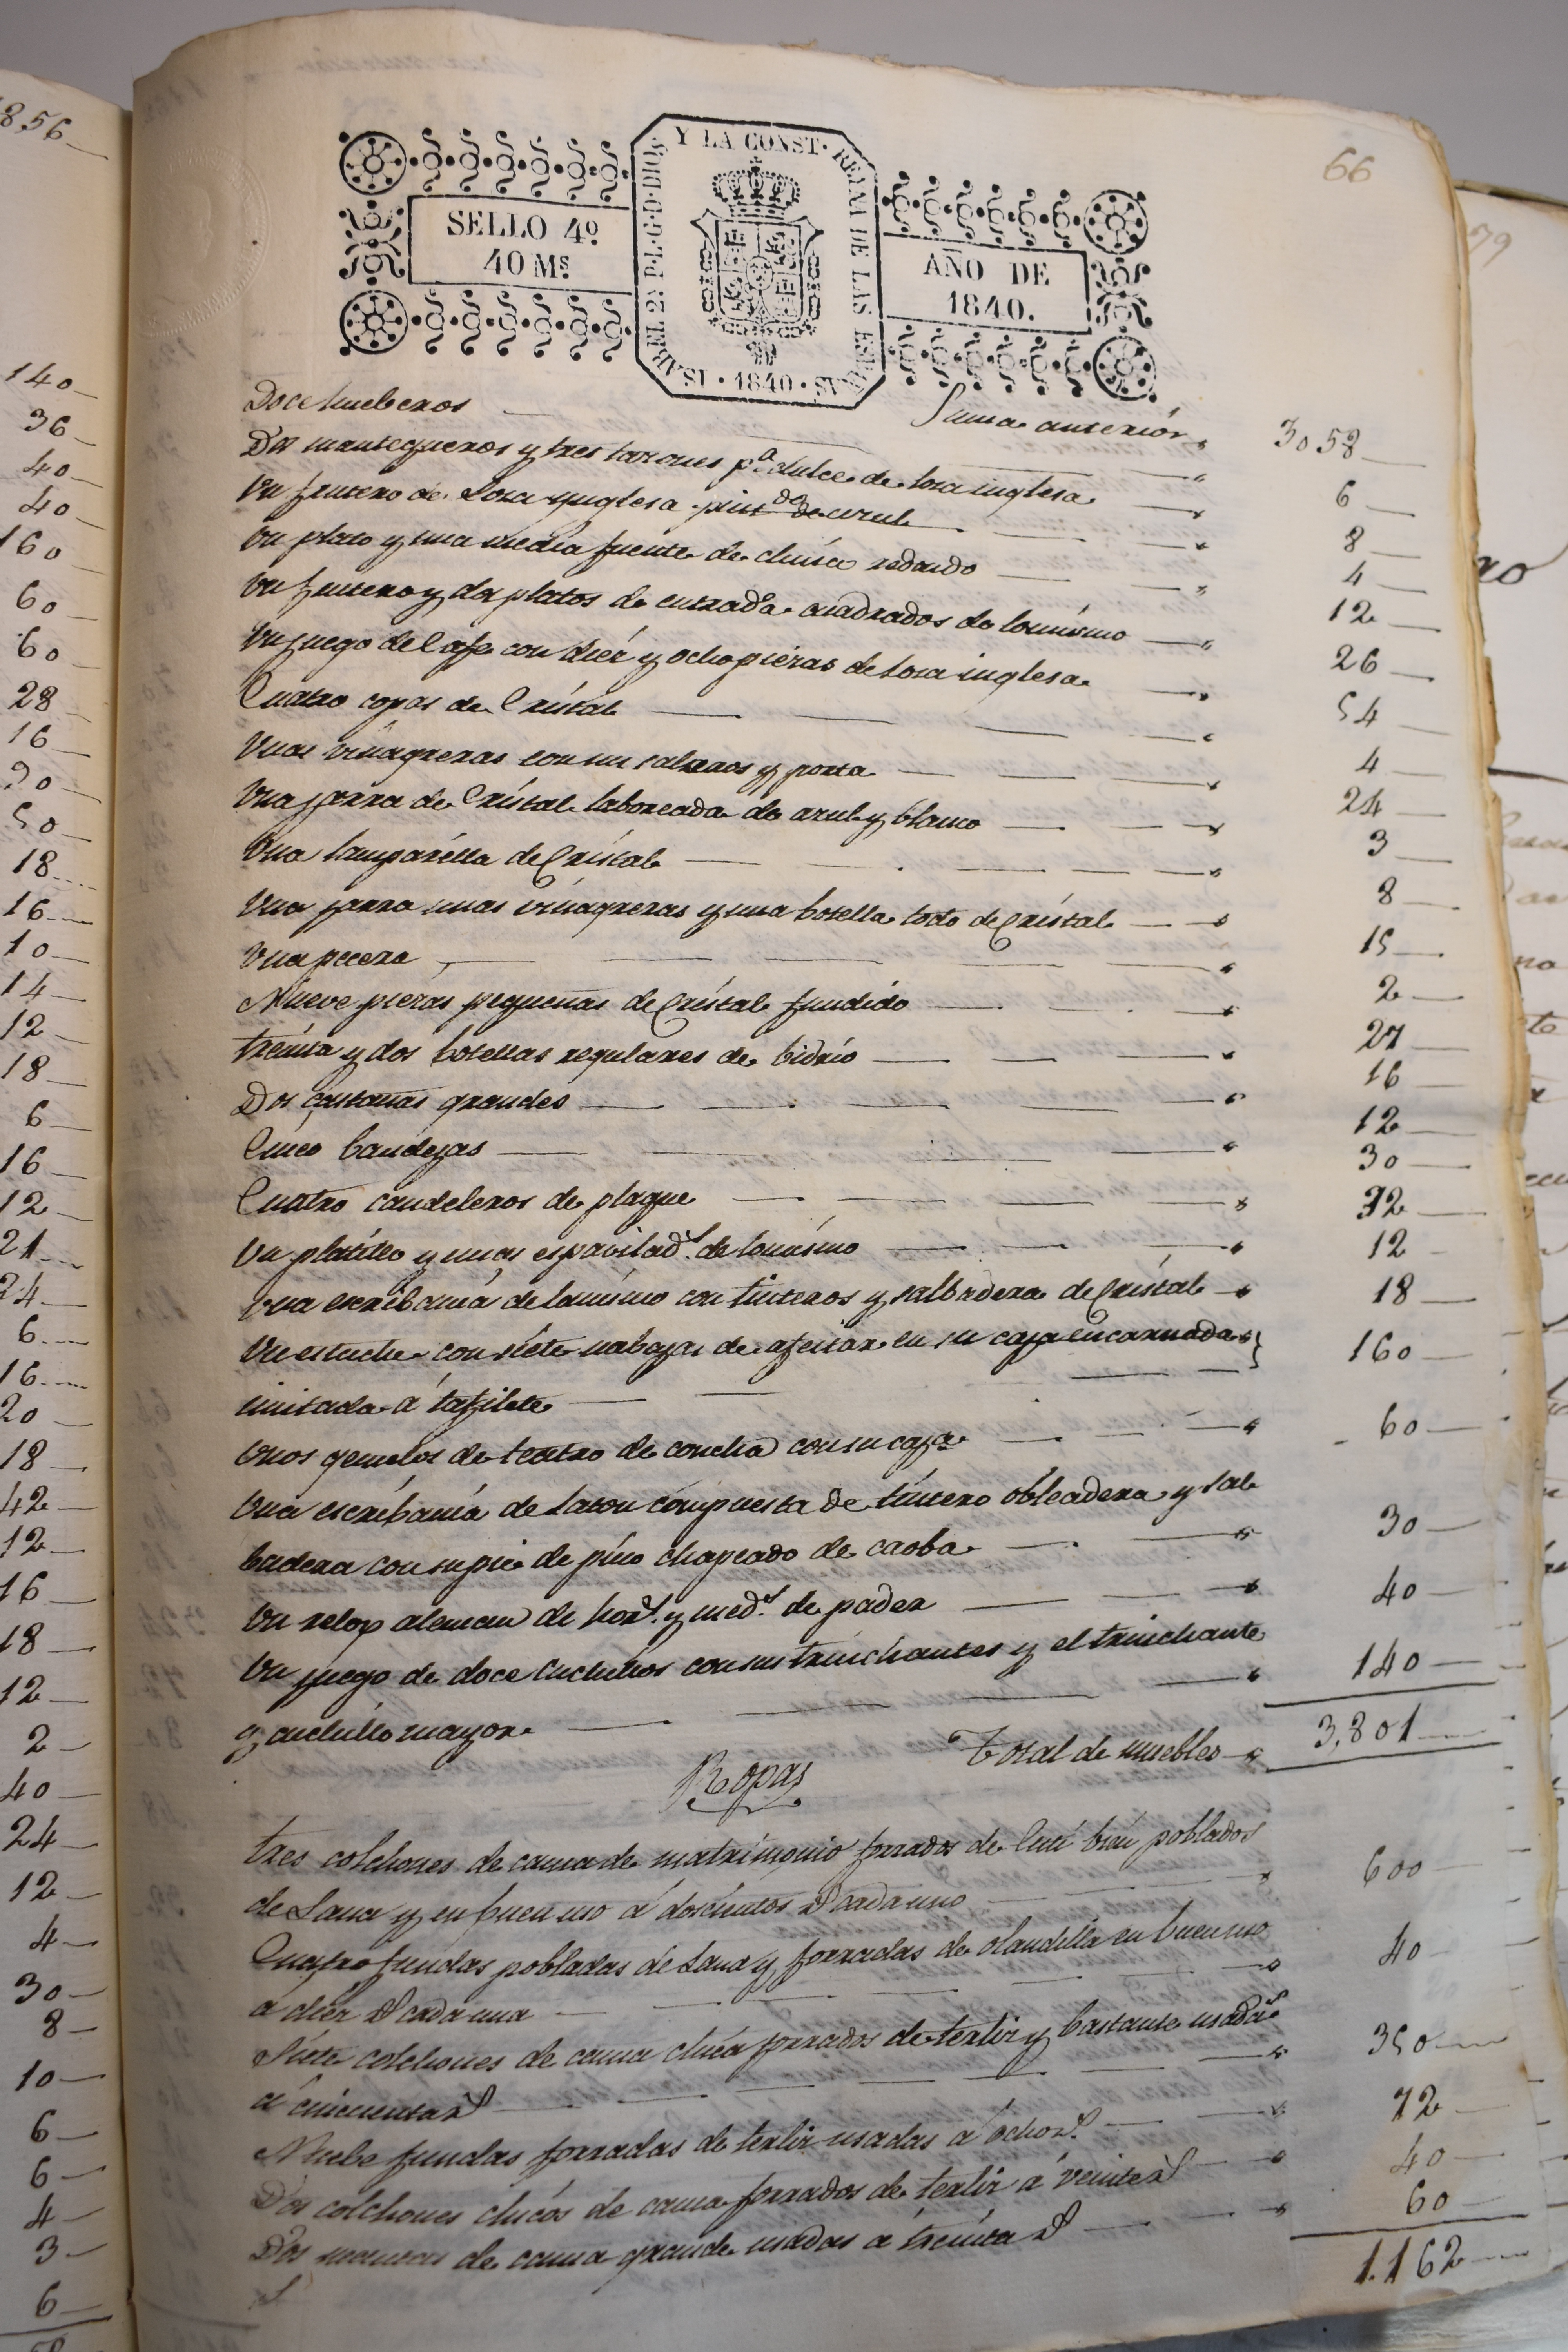 856
140
36
40
40
160
60
60
28
16
50
18
16
10
14
12
18
6
16
12
21
24
6
16
20
18
42
12
16
18
12
2
40
24
12
4
30
8
10
6
6
4
3
6
66
79
SELLO 4º
40 Ms
ISABEL 2ª P.L.G.D.DIOS Y LA CONST. REINA DE LAS ESPAÑAS
· 1840 ·
AÑO DE
1840.
Suma anterior 3058
Doce hueberos 6
Dos mantequeros y tres tazones pª dulce de loza inglesa 8
Un frutero de Loza ynglesa pintdo de azul 4
Un plato y una media fuente de china redondo 12
Un frutero y dos platos de entrada cuadrados de lo mismo 26
Un juego de Cafe con diez y ocho piezas de loza inglesa 54
Cuatro copas de Cristal 4
Unas vinagreras con su saleros y porta 24
Una jarra de Cristal laboreada de azul y blanco 3
Una lamparilla de Cristal 8
Una jarra unas vinagreras y una botella todo de Cristal 15
Una pecera 2
Nueve piezas pequeñas de Cristal fundido 27
treinta y dos botellas regulares de bidrio 16
Dos castañas grandes 12
Cinco bandejas 30
Cuatro candeleros de plaque 32
Un platillo y unas espavilads. de lo mismo 12
Una escribania de lo mismo con tinteros y salbadera de Cristal 18
Un estuche con siete nabajas de afeitar en su caja encarnada
imitada á tafilete 160
Unos gemelos de teatro de concha con su caja 60
Una escribania de laton compuesta de tintero obleadera y sal
badera con su pie de pino chapeado de caoba 30
Un relox aleman de hors. y meds. de pader 40
Un juego de doce cuchillos con sus trinchantes y el trinchante
y cuchillo mayor 140
Total de muebles 3,801
Ropas
tres colchones de cama de matrimonio forrados de Cuti bien poblados
de Lana y en buen uso á doscientos rs cada uno 600
Cuatro fundas pobladas de Lana y forradas de olandilla en buen uso
a diez rs cada una 40
Siete colchones de cama chica forrados de terliz y bastante usados
á cincuenta rs 350
Nuebe fundas forradas de terliz usadas á ocho rs. 72
Dos colchones chicos de cama forrados de terliz á veinte rs 40
Dos mantas de cama grande usadas á treinta rs 60
1.162